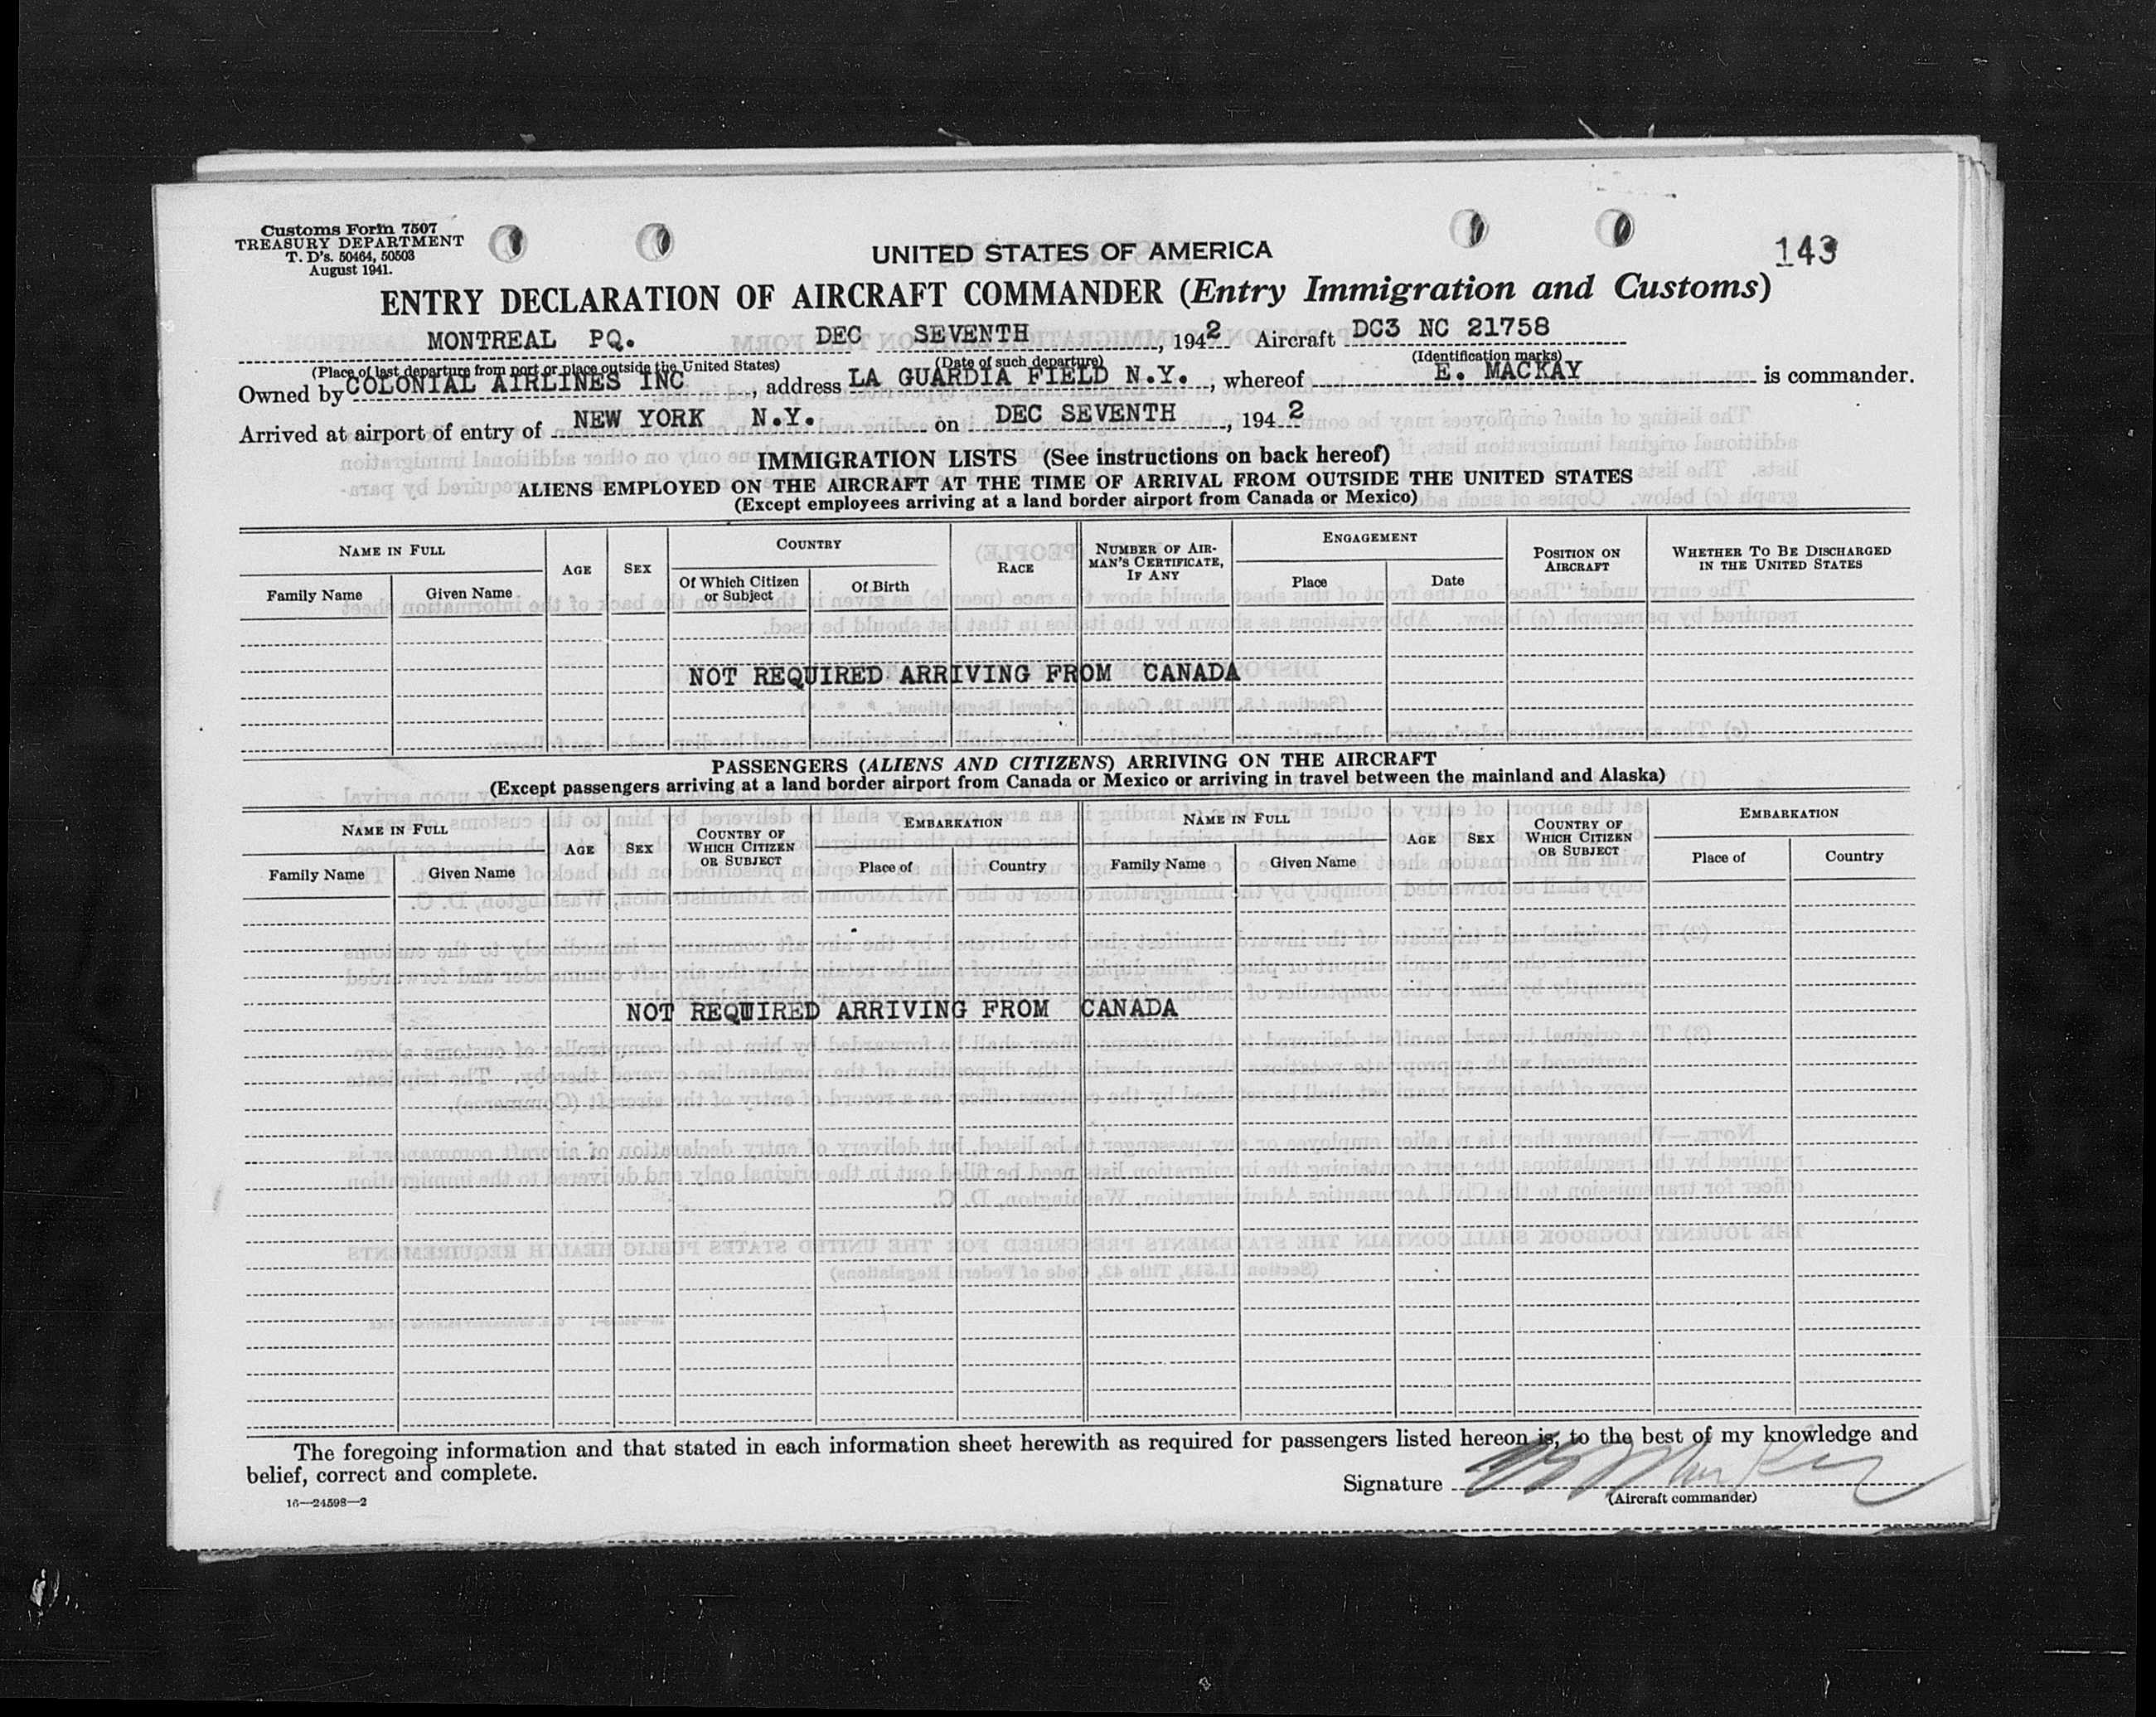 Customs Form 7507
TREASURY DEPARTMENT
T. D's. 50464, 50503
August 1941.
143
UNITED STATES OF AMERICA
ENTRY DECLARATION OF AIRCRAFT COMMANDER (Entry Immigration and Customs)
MONTREAL PQ. DEC SEVENTH, 1942 Aircraft DC3 NC 21758
(Place of last departure from port or place outside the United States) (Date of such departure) (Identification marks)
Owned by COLONIAL AIRLINES INC, address LA GUARDIA FIELD N.Y., whereof E. MACKAY is commander.
Arrived at airport of entry of NEW YORK N.Y. on DEC SEVENTH, 1942
IMMIGRATION LISTS (See instructions on back hereof)
ALIENS EMPLOYED ON THE AIRCRAFT AT THE TIME OF ARRIVAL FROM OUTSIDE THE UNITED STATES
(Except employees arriving at a land border airport from Canada or Mexico)
NAME IN FULL AGE SEX COUNTRY RACE NUMBER OF AIR-MAN'S CERTIFICATE, IF ANY ENGAGEMENT POSITION ON AIRCRAFT WHETHER TO BE DISCHARGED IN THE UNITED STATES
Family Name Given Name Of Which Citizen or Subject Of Birth Place Date
NOT REQUIRED ARRIVING FROM CANADA
PASSENGERS (ALIENS AND CITIZENS) ARRIVING ON THE AIRCRAFT
(Except passengers arriving at a land border airport from Canada or Mexico or arriving in travel between the mainland and Alaska)
NAME IN FULL AGE SEX COUNTRY OF WHICH CITIZEN OR SUBJECT EMBARKATION NAME IN FULL AGE SEX COUNTRY OF WHICH CITIZEN OR SUBJECT EMBARKATION
Family Name Given Name Place of Country Family Name Given Name Place of Country
NOT REQUIRED ARRIVING FROM CANADA
The foregoing information and that stated in each information sheet herewith as required for passengers listed hereon is, to the best of my knowledge and
belief, correct and complete.
Signature
(Aircraft commander)
16—24598—2